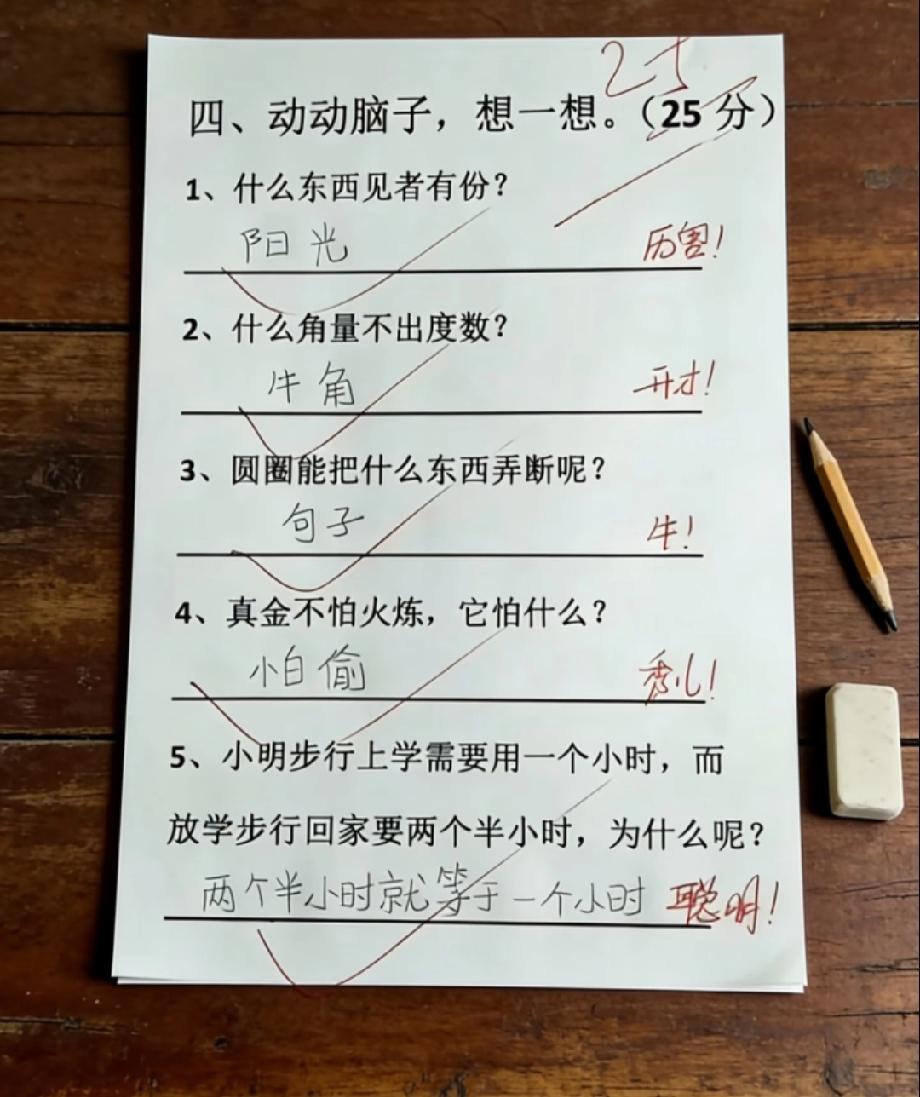 25
四、动动脑子，想一想。（25 分）
1、什么东西见者有份？
阳光 厉害！
2、什么角量不出度数？
牛角 开才！
3、圆圈能把什么东西弄断呢？
句子 牛！
4、真金不怕火炼，它怕什么？
怕偷 秀儿！
5、小明步行上学需要用一个小时，而
放学步行回家要两个半小时，为什么呢？
两个半小时就等于一个小时 聪明！